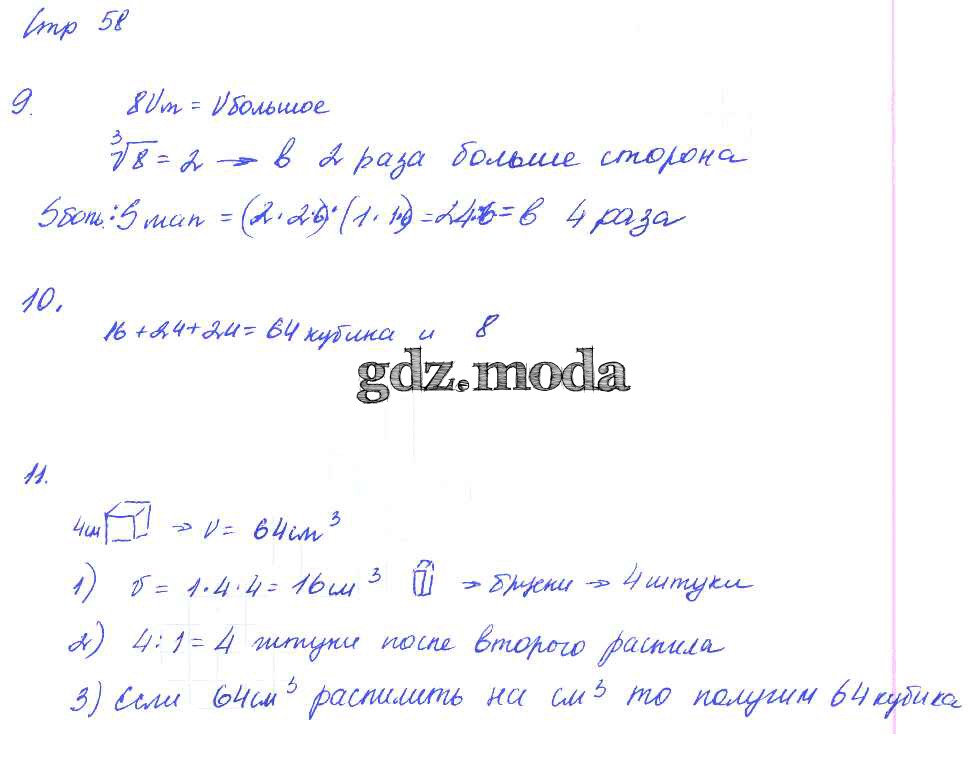 Стр 58
9. 8Vm = Vбольшое
∛8 = 2 → в 2 раза больше сторона
Sбол.: Sмал = (2·2·6):(1·1·6) = 24:6 = в 4 раза
10.
16+24+24= 64 кубика и 8
gdz.moda
11.
4см → V= 64см³
1) V= 1·4·4=16см³ → бруски → 4 штуки
2) 4:1=4 штуки после второго распила
3) Если 64см³ распилить на см³ то получим 64 кубика